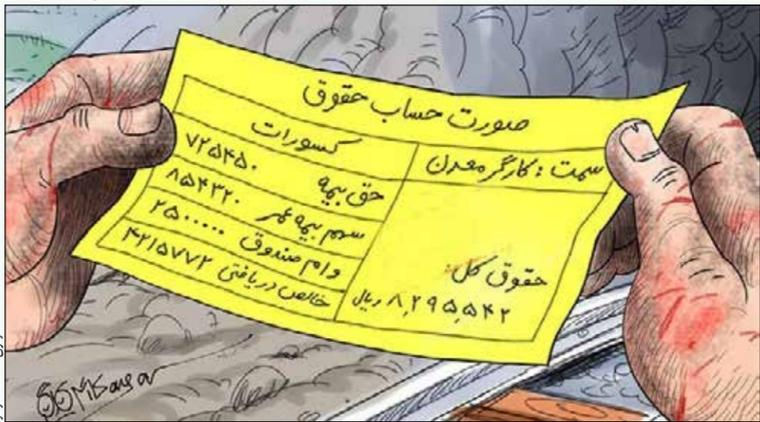 صورت حساب حقوق
سمت : کارگر معدن
حقوق کل:
۸,۲۹۵,۵۴۲ ریال
کسورات
حق بیمه ۷۲۵۴۵۰
سهم بیمه عمر ۸۵۴۳۲۰
وام صندوق ۲۵۰۰۰۰۰
خالص دریافتی ۴۲۱۵۷۷۲